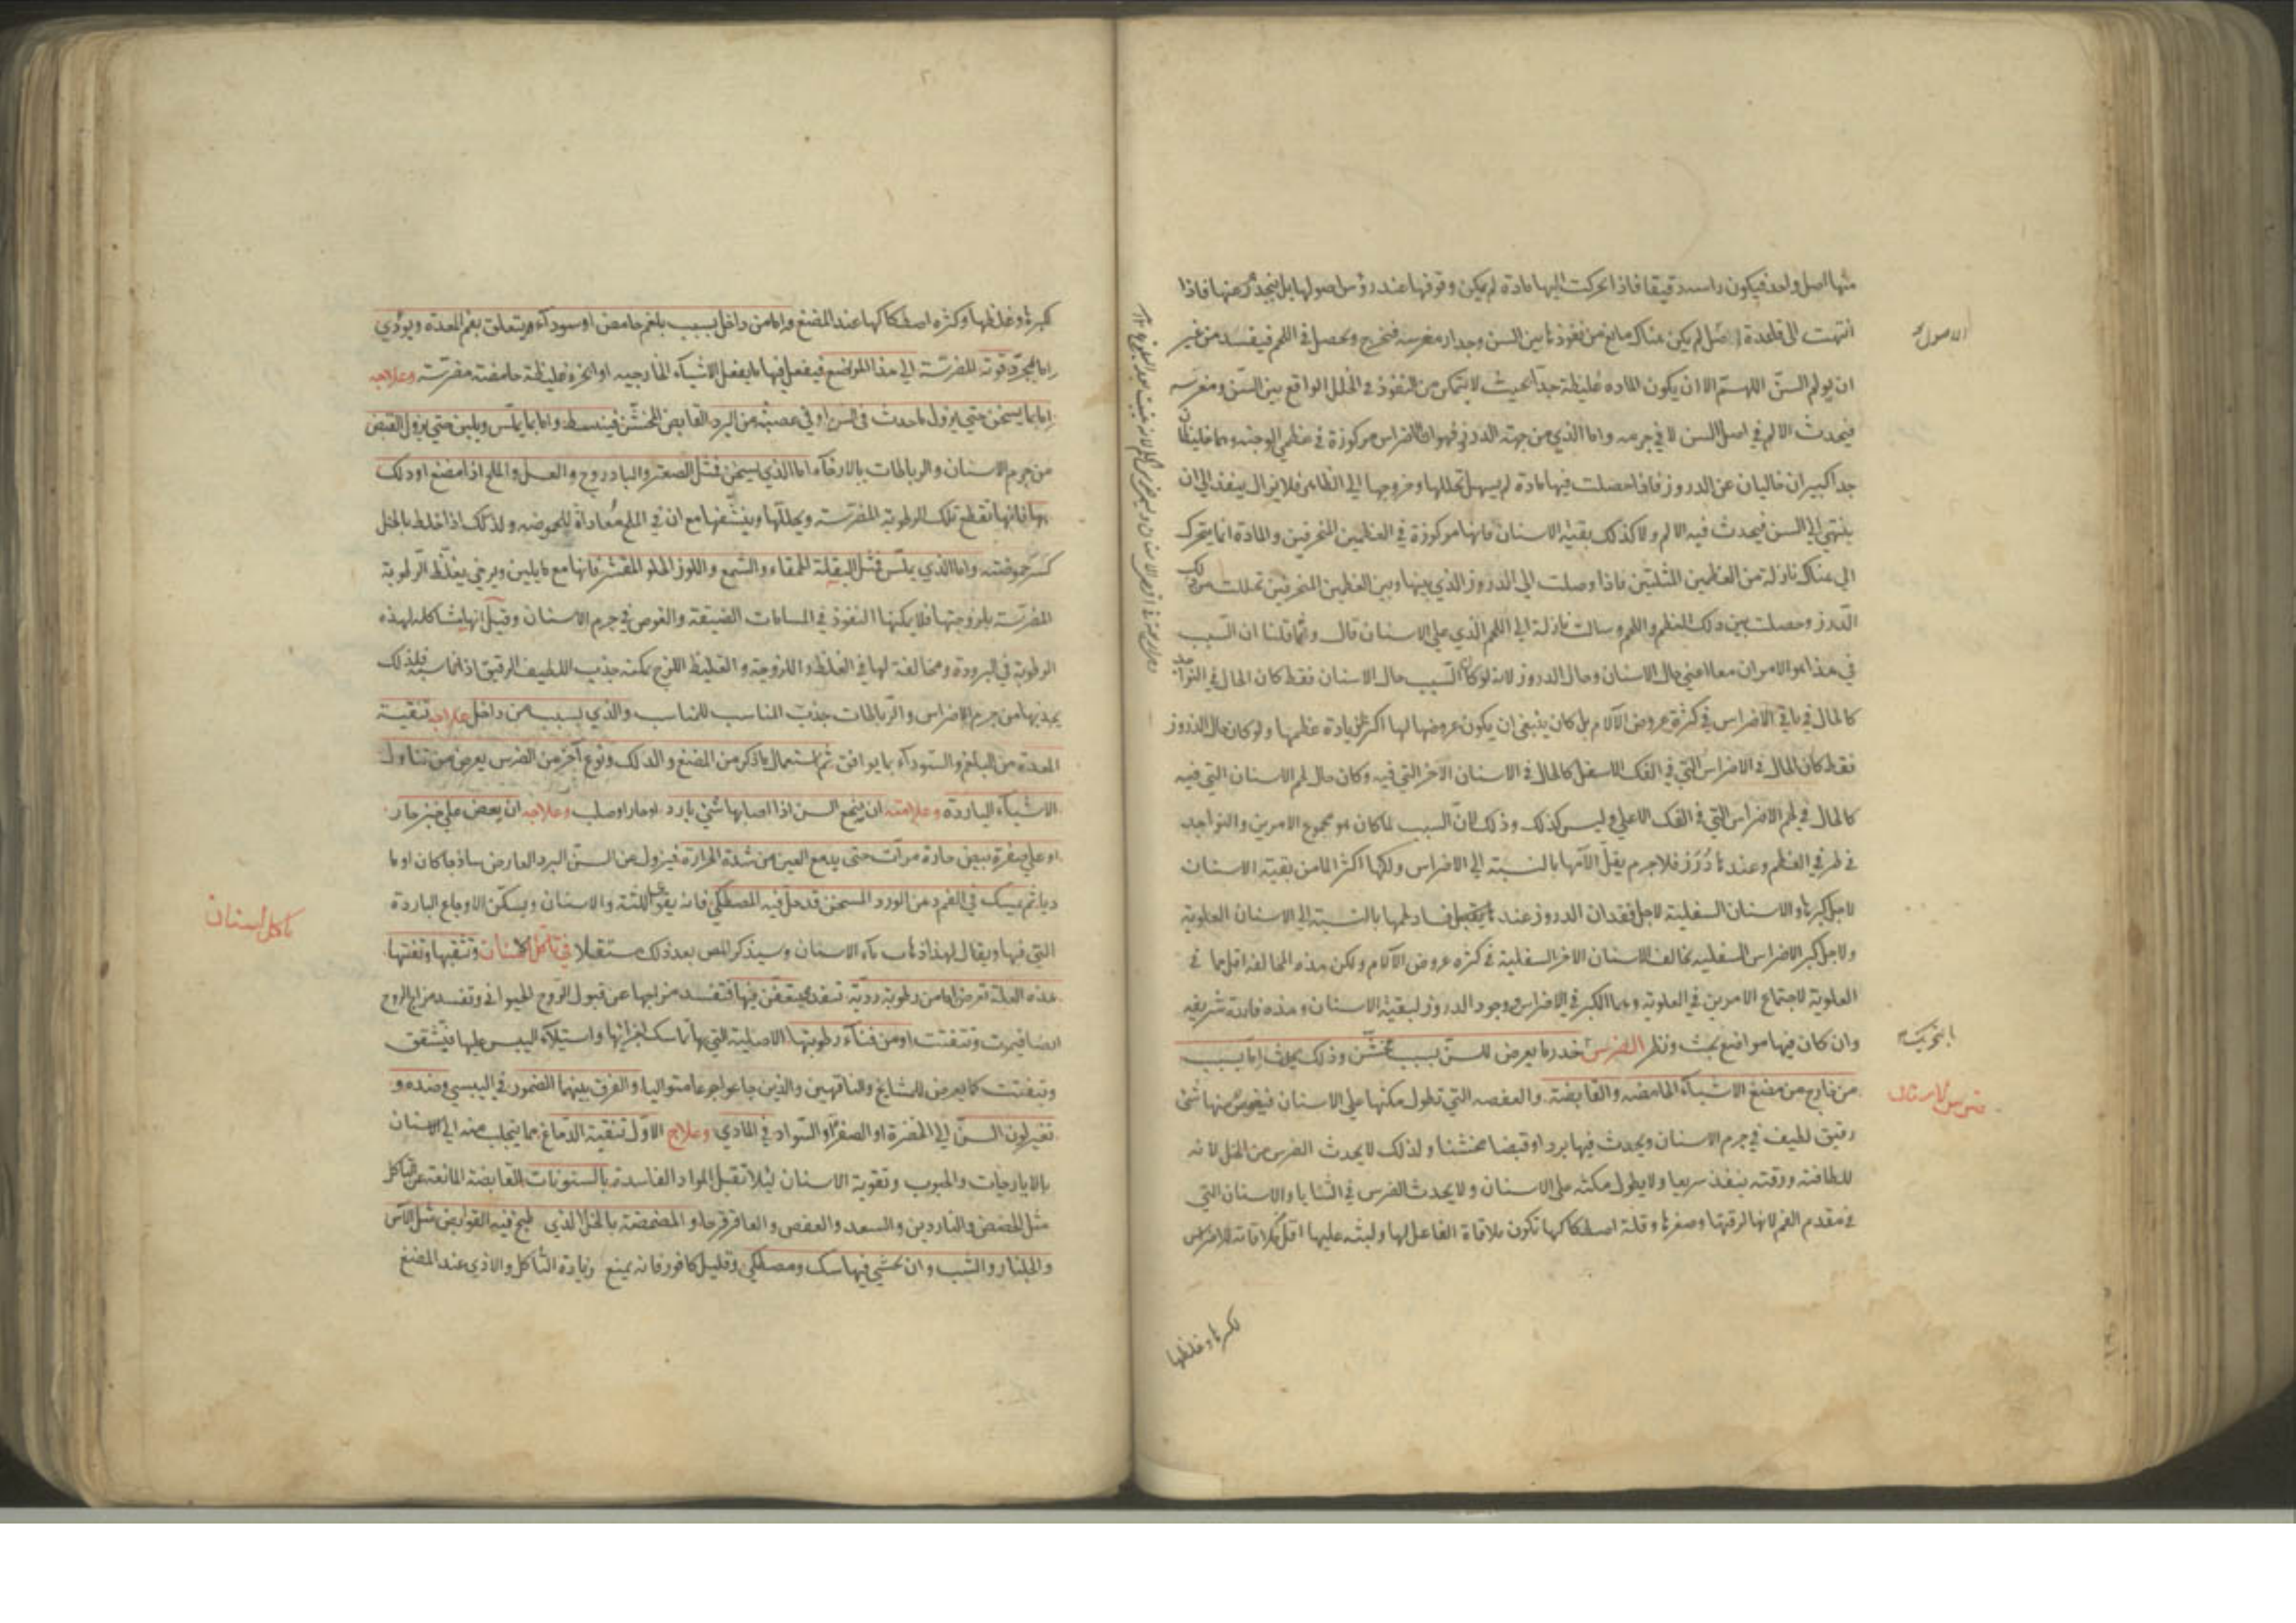 منها اصل واحد فيكون راسه دقيقا فاذا تحركت اليها مادة لم يمكن وقوفها عند رؤس اصولها بل ينجذر عنها فاذا
انتهت الى قاعدة الاصل لم يكن هناك مانع من نفوذ ما بين السن وجدار مغرسه فتخرج وتحصل في اللحم فيفسد من غير
ان يولم السنّ اللهم الا ان يكون الماده غليظة جدا بحيث لا يتمكن من النفوذ في الخلل الواقع بين السنّ ومغرسه
فيحدث الالم في اصل السن لا في جرمه واما الذي من جهة الدروز فهو ان الاضراس مركوزة في عظمي الوجنه وهما غليظان
جدا كبيران خاليان عن الدروز فاذا حصلت فيها مادة لم يسهل تحللها وخروجها الى الظاهر فلا يزال ينفذ الى ان
ينتهي الى السن فيحدث فيه الالم ولا كذلك بقية الاسنان فانها مركوزة في العظمين المنحرفين والمادة انما يتحرك
الى هناك نازلة من العظمين المثلثين فاذا وصلت الى الدروز الذي بينها وبين العظمين المنحرفين تحللت من ذلك
الدرز وحصلت بين ذلك العظم واللحم وسالت نازلة الى اللحم الذي على الاسنان قال وانما قلنا ان السبب
في هذا هو الامران معا اعني حال الاسنان وحال الدروز لانه لو كان السبب حال الاسنان فقط كان الحال في النواجد
كالحال في باقي الاضراس في كثرة عروض الآلام بل كان ينبغي ان يكون عروضها لها اكثر لزيادة عظمها ولو كان حال الدروز
فقط كان الحال في الاضراس التي في الفك الاسفل كالحال في الاسنان الاخر التي فيه وكان حال لحم الاسنان التي فيه
كالحال في لحم الاضراس التي في الفك الاعلى وليس كذلك وذلك لان السبب لما كان هو مجموع الامرين والنواجد
في طرفي العظم وعندها دُرُز فلا جرم يقلّ الآمها بالنسبة الى الاضراس ولكنها اكثر الما من بقية الاسنان
لاجل كبرها والاسنان السفلية لاجل فقدان الدروز عندها يقل فساد لحمها بالنسبة الى الاسنان العلوية
ولاجل كبر الاضراس السفليه تخالف الاسنان الاخر السفلية في كثرة عروض الآلام ولكن هذه المخالفة اقل مما في
العلوية لاجتماع الامرين في العلوية وهما الكبر في الاضراس ووجود الدروز لبقية الاسنان وهذه فائدة شريفه
وان كان فيها مواضع بحث ونظر الضرس خدر ما يعرض للسنّ بسبب مخشّن وذلك يحدث اما بسبب
من خارج من مضغ الاشياء الحامضه والقابضة والعفصه التي تطول مكثها على الاسنان فيغوص منها شئ
رقيق لطيف في جرم الاسنان ويحدث فيها بردا وقبضا مخشنا ولذلك لا يحدث الضرس من الخل لانه
للطافته ورقته ينفذ سريعا ولا يطول مكثه على الاسنان ولا يحدث الضرس في الثنايا والاسنان التي
في مقدم الفم لانها لرقتها وصغرها وقلة اصطكاكها تكون ملاقاة الفاعل لها ولبثه عليها اقل ملاقاته للاضراس
لكبرها وغلظها
الاصول
ضرس الاسنان
كبرها وغلظها وكثرة اصطكاكها عند المضغ واما من داخل بسبب بلغم حامض او سوداء ويتعلق بفم المعدة ويؤدي
اما بمجرد قوته المضرسة الى هذا الموضع فيفعل فيها ما يفعل الاشياء الخارجيه او ابخرة غليظة حامضة مضرسة وعلاجه
اما بما يسخن حتى يزول ما حدث في السن او في عصبه من البرد القابض المخشّن فينبسط واما بما يملّس ويلين حتى يزول القبض
من جرم الاسنان والرباطات بالارخاء اما الذي يسخن فمثل الصعتر والبادروج والعسل والملح اذا مضغ او دلك
بها فانها تقطع تلك الرطوبة المضرسة ويحللها وينشّفها مع ان في الملح مُعاداةً للحموضه ولذلك اذا خلط بالخل
كسر حموضته واما الذي يملّس فمثل البقلة الحمقاء والشمع واللوز الحلو المقشر فانها مع ما يلين ويرخي يغلّظ الرطوبة
المضرسة بلزوجتها فلا يمكنها النفوذ في المسامات الضيقة والغوص في جرم الاسنان وقيل انها مشاكلة لهذه
الرطوبة في البرودة ومخالفة لها في الغلظ واللزوجة والغليظ اللزج يمكنه جذب اللطيف الرقيق اذا ناسبه فلذلك
يجذبها من جرم الاضراس والرباطات جذب المناسب للمناسب والذي بسبب من داخل علاجه تنقية
المعدة من البلغم والسوداء بما يوافق ثم استعمال ما ذكر من المضغ والدلك ونوع آخر من الضرس يعرض من تناول
الاشياء الباردة وعلامته ان يتجع السن اذا اصابها شئ بارد او حار او صلب وعلاجه ان يعض على خبز حار
او على صفرة بيض حارة مرات حتى يدمع العين من شدة الحرارة فيزول عن السنّ البرد العارض ساذجا كان او ما
ديا ثم يمسك في الفم دهن الورد المسخن قد حل فيه المصطكي فانه يقوي اللثة والاسنان ويسكّن الاوجاع الباردة
التي فيها ويقال لهذا ذهاب ماء الاسنان وسيذكر المص بعد ذلك مستقبلا في تآكل الاسنان وتثقبها وتفتتها
هذه العلة تعرض اما من رطوبة رديّة تنفذ فيتعفن فيها فتفسد مزاجها عن قبول الروح الحيواني وتفسد مزاج الروح
ايضا فيموت وتتفتت او من فناء رطوبتها الاصلية التي بها تماسك اجزائها واستيلاء اليبس عليها فيتشقق
وتتفتت كما يعرض للمشايخ والناقهين والذين جاعوا جوعا متواليا والفرق بينهما الضمور في اليبسي وضده و
تغير لون السنّ الى الخضرة او الصفرة او السواد في المادي وعلاج الاول تنقية الدماغ مما ينجلب منه الى الاسنان
بالايارجات والحبوب وتقوية الاسنان لئلا تقبل المواد الفاسدة بالسنونات القابضة المانعة عن التاكل
مثل الحضض والناردين والسعد والعفص والعاقرقرحا والمضمضة بالخل الذي طبخ فيه القوابض مثل الآس
والجلنار والشب وان تحشى فيها سك ومصطكي وقليل كافور فانه يمنع زيادة التاكل والاذى عند المضغ
تاكل اسنان